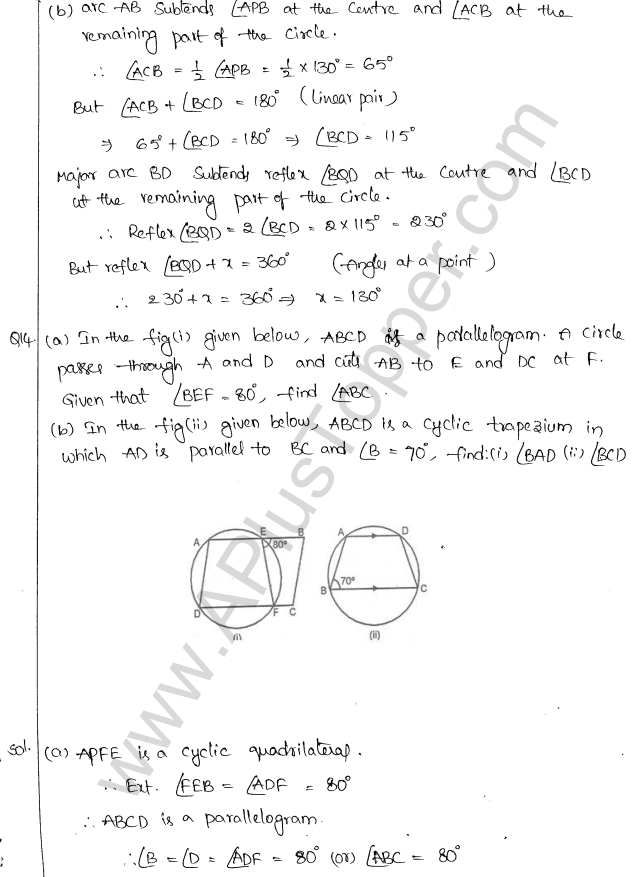 (b) arc AB Subtends ∠APB at the Centre and ∠ACB at the
remaining part of the circle.
∴ ∠ACB = 1/2 ∠APB = 1/2 × 130° = 65°
But ∠ACB + ∠BCD = 180° (Linear pair)
⇒ 65° + ∠BCD = 180° ⇒ ∠BCD = 115°
Major arc BD Subtends reflex ∠BQD at the Centre and ∠BCD
at the remaining part of the circle.
∴ Reflex ∠BQD = 2 ∠BCD = 2 × 115° = 230°
But reflex ∠BQD + x = 360° (Angles at a point)
∴ 230° + x = 360° ⇒ x = 130°
Q14. (a) In the fig(i) given below, ABCD is a parallelogram. A circle
passes through A and D and cuts AB to E and DC at F.
Given that ∠BEF = 80°, find ∠ABC.
(b) In the fig(ii) given below, ABCD is a cyclic trapezium in
which AD is parallel to BC and ∠B = 70°, find:(i) ∠BAD (ii) ∠BCD
A E B 80° D F C
(i)
A D B 70° C
(ii)
Sol. (a) ADFE is a cyclic quadrilateral.
∴ Ext. ∠FEB = ∠ADF = 80°
∴ ABCD is a parallelogram.
∴ ∠B = ∠D = ∠ADF = 80° (or) ∠ABC = 80°
www.APlusTopper.com